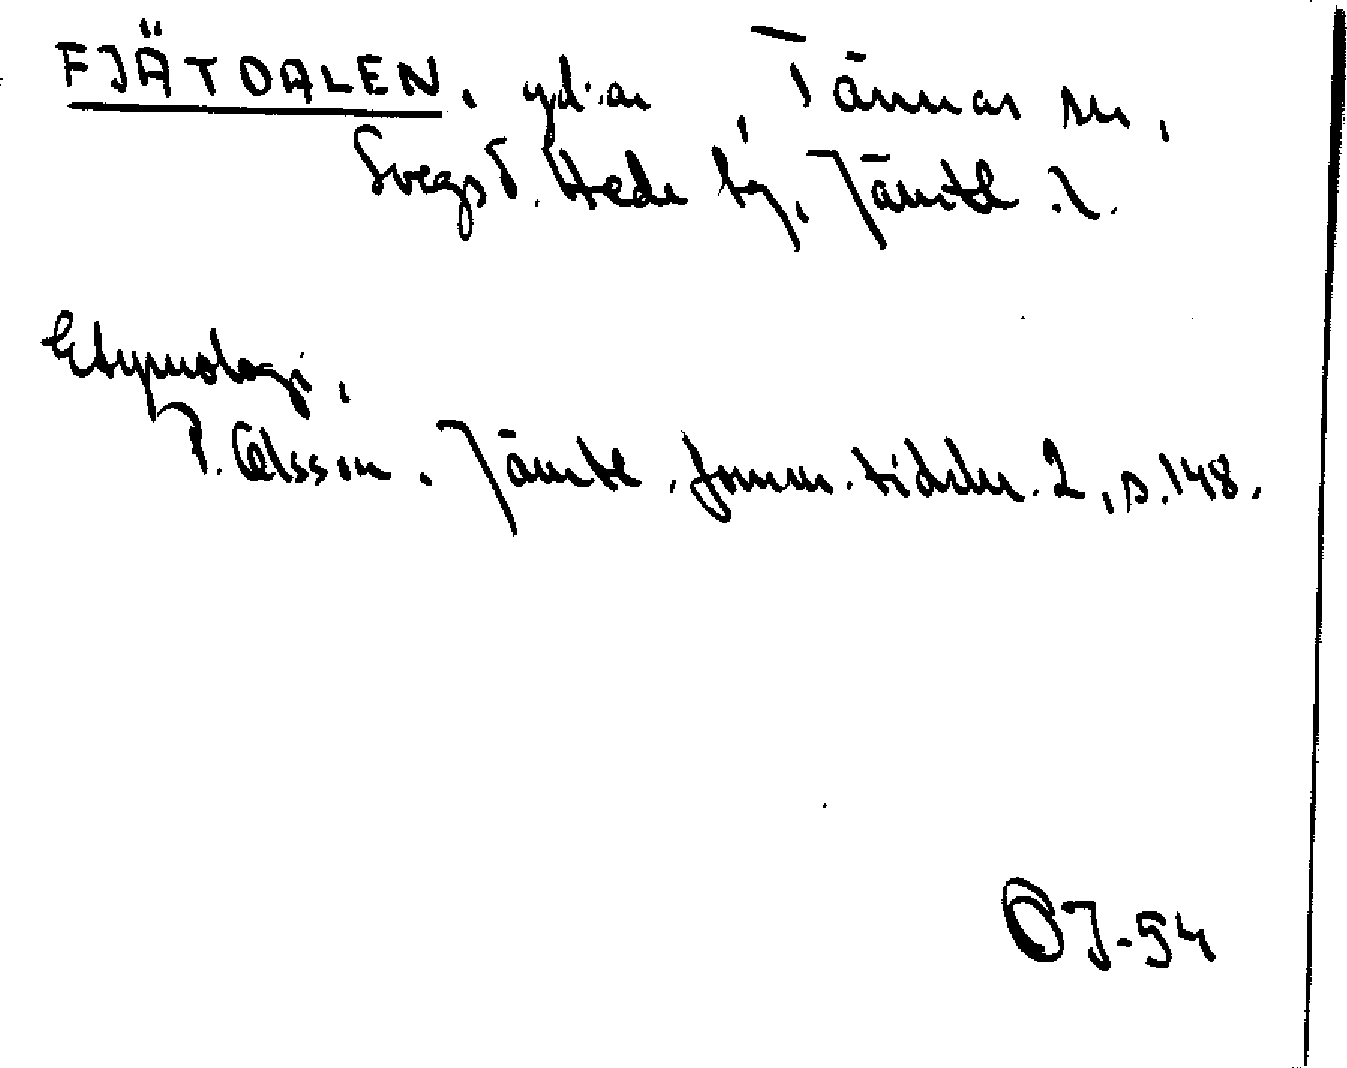 FJÄTDALEN, yd·an, Tännäs sn,
Svegs t. Hede tg, Jämtl. l.
Etymologi,
P. Olsson. Jämtl. fornm. tidskr. 2, s. 148.
OJ-54